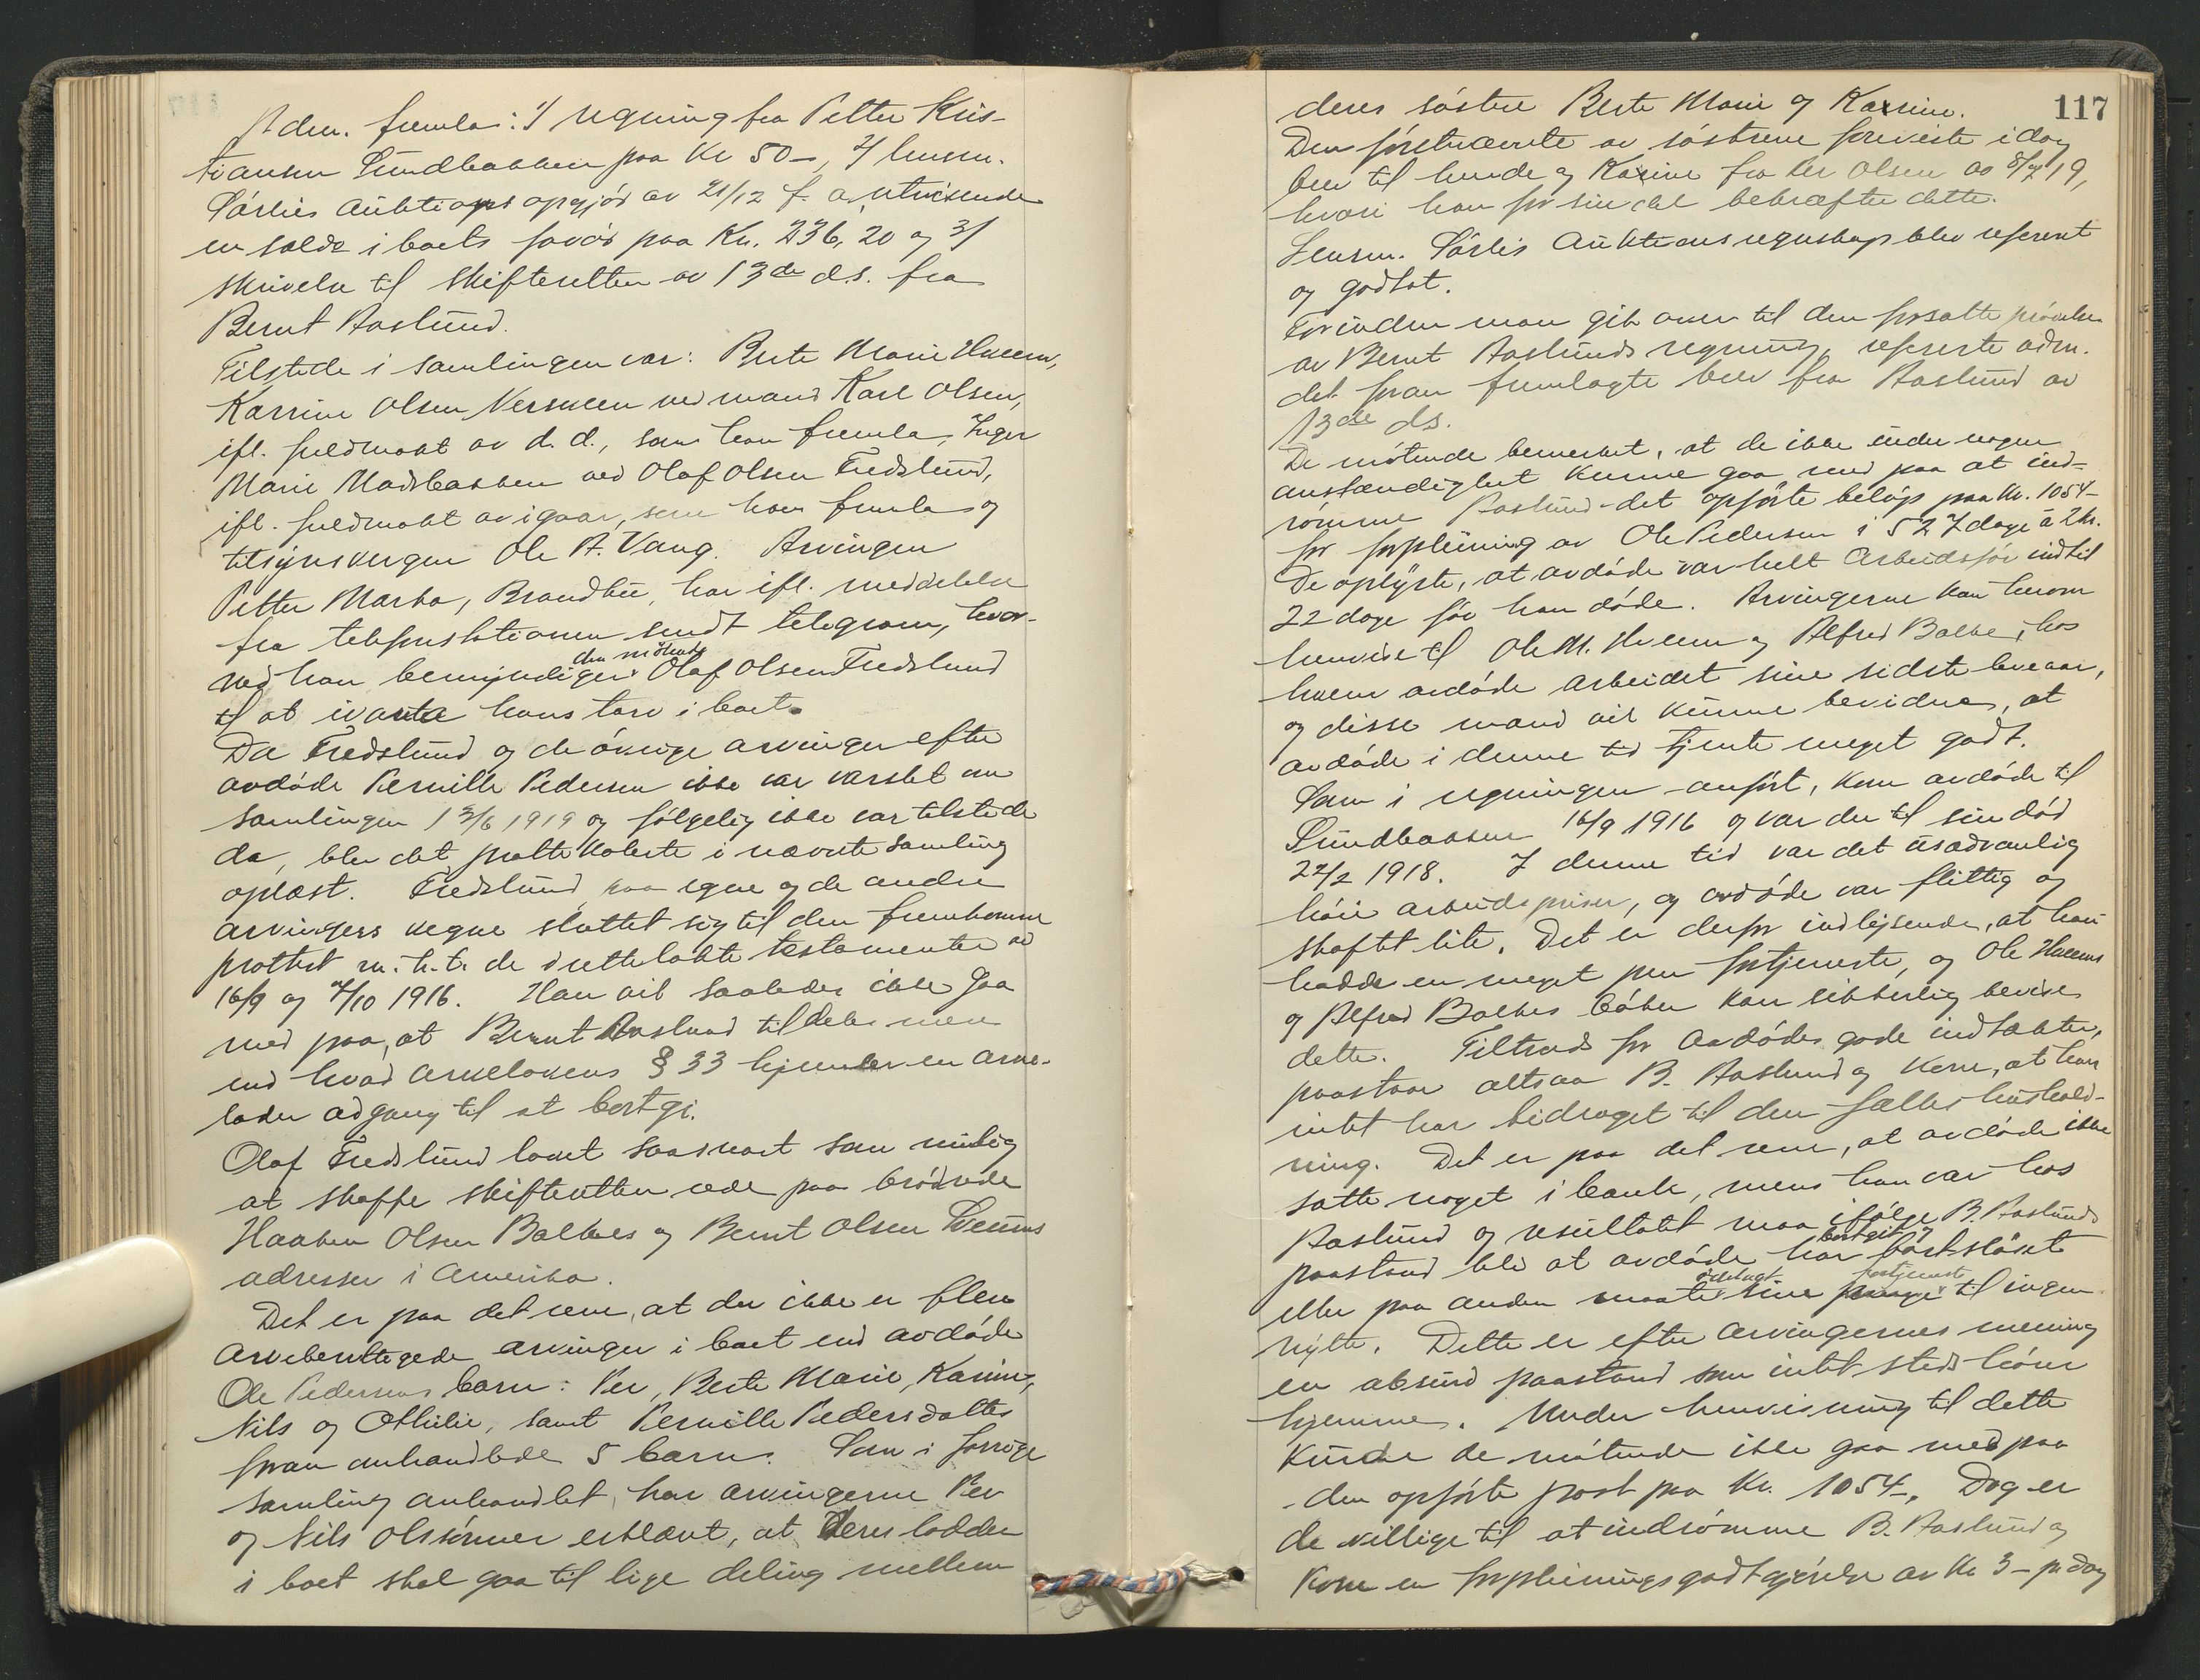 Adm. fremla: 1/ regning fra Petter Kris-
tiansen Sundbakken paa Kr 50–, 2/ lensm.
Sørlies Auktions opgjør av 21/12 f. a. utvisende
en saldo i boets favør paa Kr. 236,20 og 3/
skrivelse til skifteretten av 13de d.s. fra
Bernt Aaslund.
Tilstede i samlingen var: Berte Marie Hveem,
Karine Olsen Versveen ved mand Karl Olsen,
ifl. fuldmakt av d. d., som han fremla, Inger
Marie Madsbakken ved Olaf Olsen Fredslund,
ifl. fuldmakt av igaar, som han fremla og
tilsynsvergen Ole A. Vang. Arvingen
Petter Marka, Brandbu, har ifl. meddelelse
fra telefonstationen sendt telegram, hvor-
ved han bemyndiger den møtende Olaf Olsen Fredslund
til at ivareta hans tarv i boet.
Da Fredslund og de øvrige arvinger efter
avdøde Pernille Pedersen ikke var varslet om
samlingen 13/6 1919 og følgelig ikke var tilstede
da, blev det protokolerte i nævnte samling
oplæst. Fredslund paa egne og de andre
arvingers vegne sluttet sig til den fremkomne
protest m. h. t. de i rettelakte testamenter av
16/9 og 7/10 1916. Han vil saaledes ikke gaa
med paa, at Bernt Aaslund tildeles mere
end hvad arvelovens § 33 hjemler en arve-
lader adgang til at bortgi.
Olaf Fredslund lovet saasnart som mulig
at skaffe skifteretten rede paa brødrede
Haaken Olsen Balkes og Bernt Olsen Sveums
adresser i Amerika.
Det er paa det rene, at der ikke er flere
arveberettigede arvinger i boet end avdøde
Ole Pedersens barn: Per, Berte Marie, Karine,
Nils og Othilie, samt Pernille Pedersdatters
foran anhandlede 5 barn. Som i forrige
samling anhandlet, har arvingerne Per
og Nils Olssønner erklært, at deres lodder
i boet skal gaa til lige deling mellem
117
deres søstre Berte Marie og Karine.
Den førstnævnte av søstrene foreviste idag
brev til hende og Karine fra Per Olsen av 8/7 19,
hvori han for sin del bekræfter dette.
Lensm. Sørlis Auktionsregnskap blev referert
og godtat.
Forinden man gik over til den forsatte prøvelse
av Bernt Aaslunds regning, refererte adm.
det foran fremlagte brev fra Aaslund av
13de ds.
De møtende bemerket, at de ikke under nogen
omstændighet kunne gaa med paa at ind-
rømme Aaslund det opførte beløp paa Kr. 1054–
for forpleining av Ole Pedersen i 527 dage à 2 kr.
De oplyste, at avdøde var helt arbeidsfør indtil
22 dage før han døde. Arvingerne kan herom
henvise til Ole M. Hveem og Alfred Balke, hos
hvem avdøde arbeidet sine sidste leveaar,
og disse mænd vil kunne bevidne, at
avdøde i denne tid tjente meget godt.
Som i regningen anført, kom avdøde til
Sundbakken 16/9 1916 og var der til sin død
27/2 1918. I denne tid var det usædvanlig
høie arbeidspriser, og avdøde var flittig og
skaftet lite. Det er derfor indlysende, at han
hadde en meget pen fortjeneste, og Ole Hveems
og Alfred Balkes bøker kan sikkerlig bevise
dette. Tiltrods for avdødes gode indtækter,
paastaar altsaa B. Aaslund og kone, at han
intet har bidraget til den fælles hushold-
ning. Det er paa det rene, at avdøde ikke
satte noget i bank, mens han var hos
Aaslund og resultatet maa ifølge B. Aaslunds
paastand bli at avdøde har bortgit og bortsløset
eller paa anden maate ødelagt sine fortjeneste til ingen
nytte. Dette er efter arvingernes mening
en absurd paastand som intet steds hører
hjemme. Under henvisning til dette
kunde de møtende ikke gaa med paa
den opførte post paa Kr. 1054–. Dog er
de villige til at indrømme B. Aaslund og
kone en forpleiningsgodtgjørelse av Kr 3– pr dag